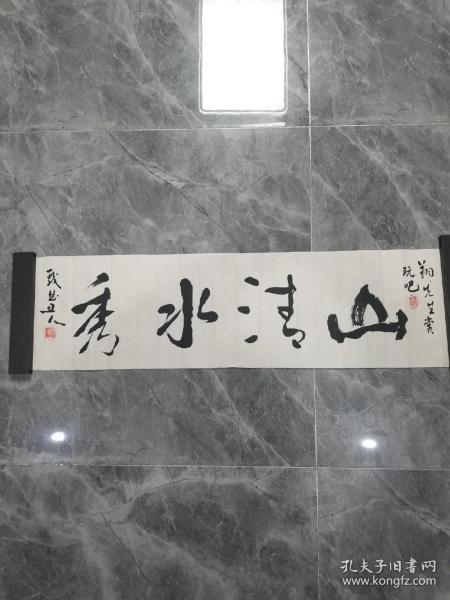 山清水秀
翔先生赏
玩吧
孔夫子旧书网
www.kongfz.com